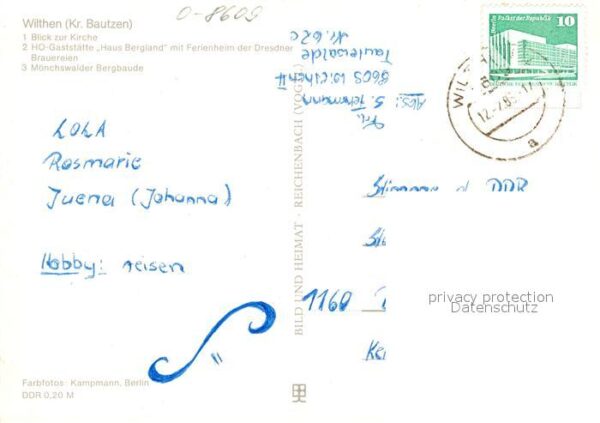 O-8609
Wilthen (Kr. Bautzen)
1 Blick zur Kirche
2 HO-Gaststätte „Haus Bergland" mit Ferienheim der Dresdner
Brauereien
3 Mönchswalder Bergbaude
LOLA
Rosmarie
Juena (Johanna)
Hobby: reisen
Farbfotos: Kampmann, Berlin
DDR 0,20 M
BILD UND HEIMAT · REICHENBACH (VOGTL)
Abs.: S.
8605 Wilthen II
Tautewalde
Nr. 62c
Berlin, Palast der Republik
10
WILTHEN
a
Stimme d DDR
1160
privacy protection
Datenschutz